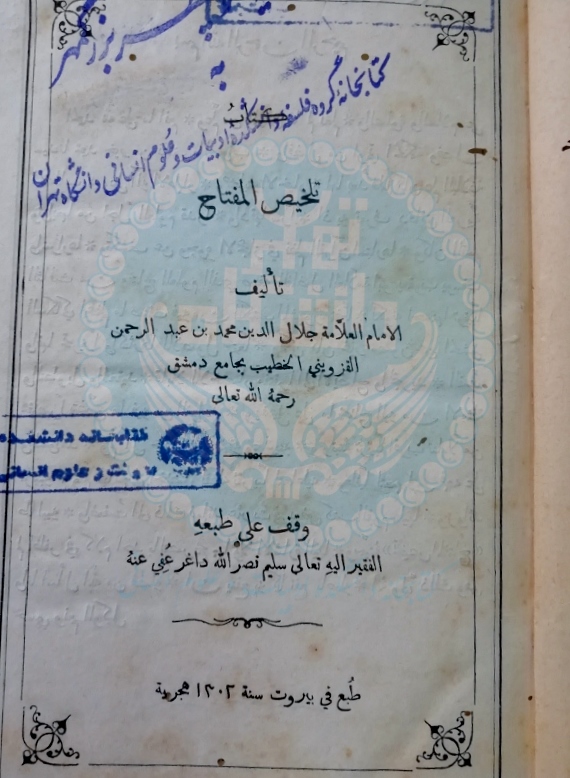 بزرگمهر
به
کتابخانه گروه فلسفه دانشکده ادبیات و علوم انسانی دانشگاه تهران
كتاب
تلخيص المفتاح
تأليف
الامام العلّامة جلال الدين محمد بن عبد الرحمن
القزويني الخطيب بجامع دمشق
رحمهُ الله تعالى
کتابخانه دانشکده
ادبیات و علوم انسانی
وقف على طبعهِ
الفقير اليهِ تعالى سليم نصر الله داغر عُفي عنهُ
طُبع في بيروت سنة ١٣٠٢ هجرية